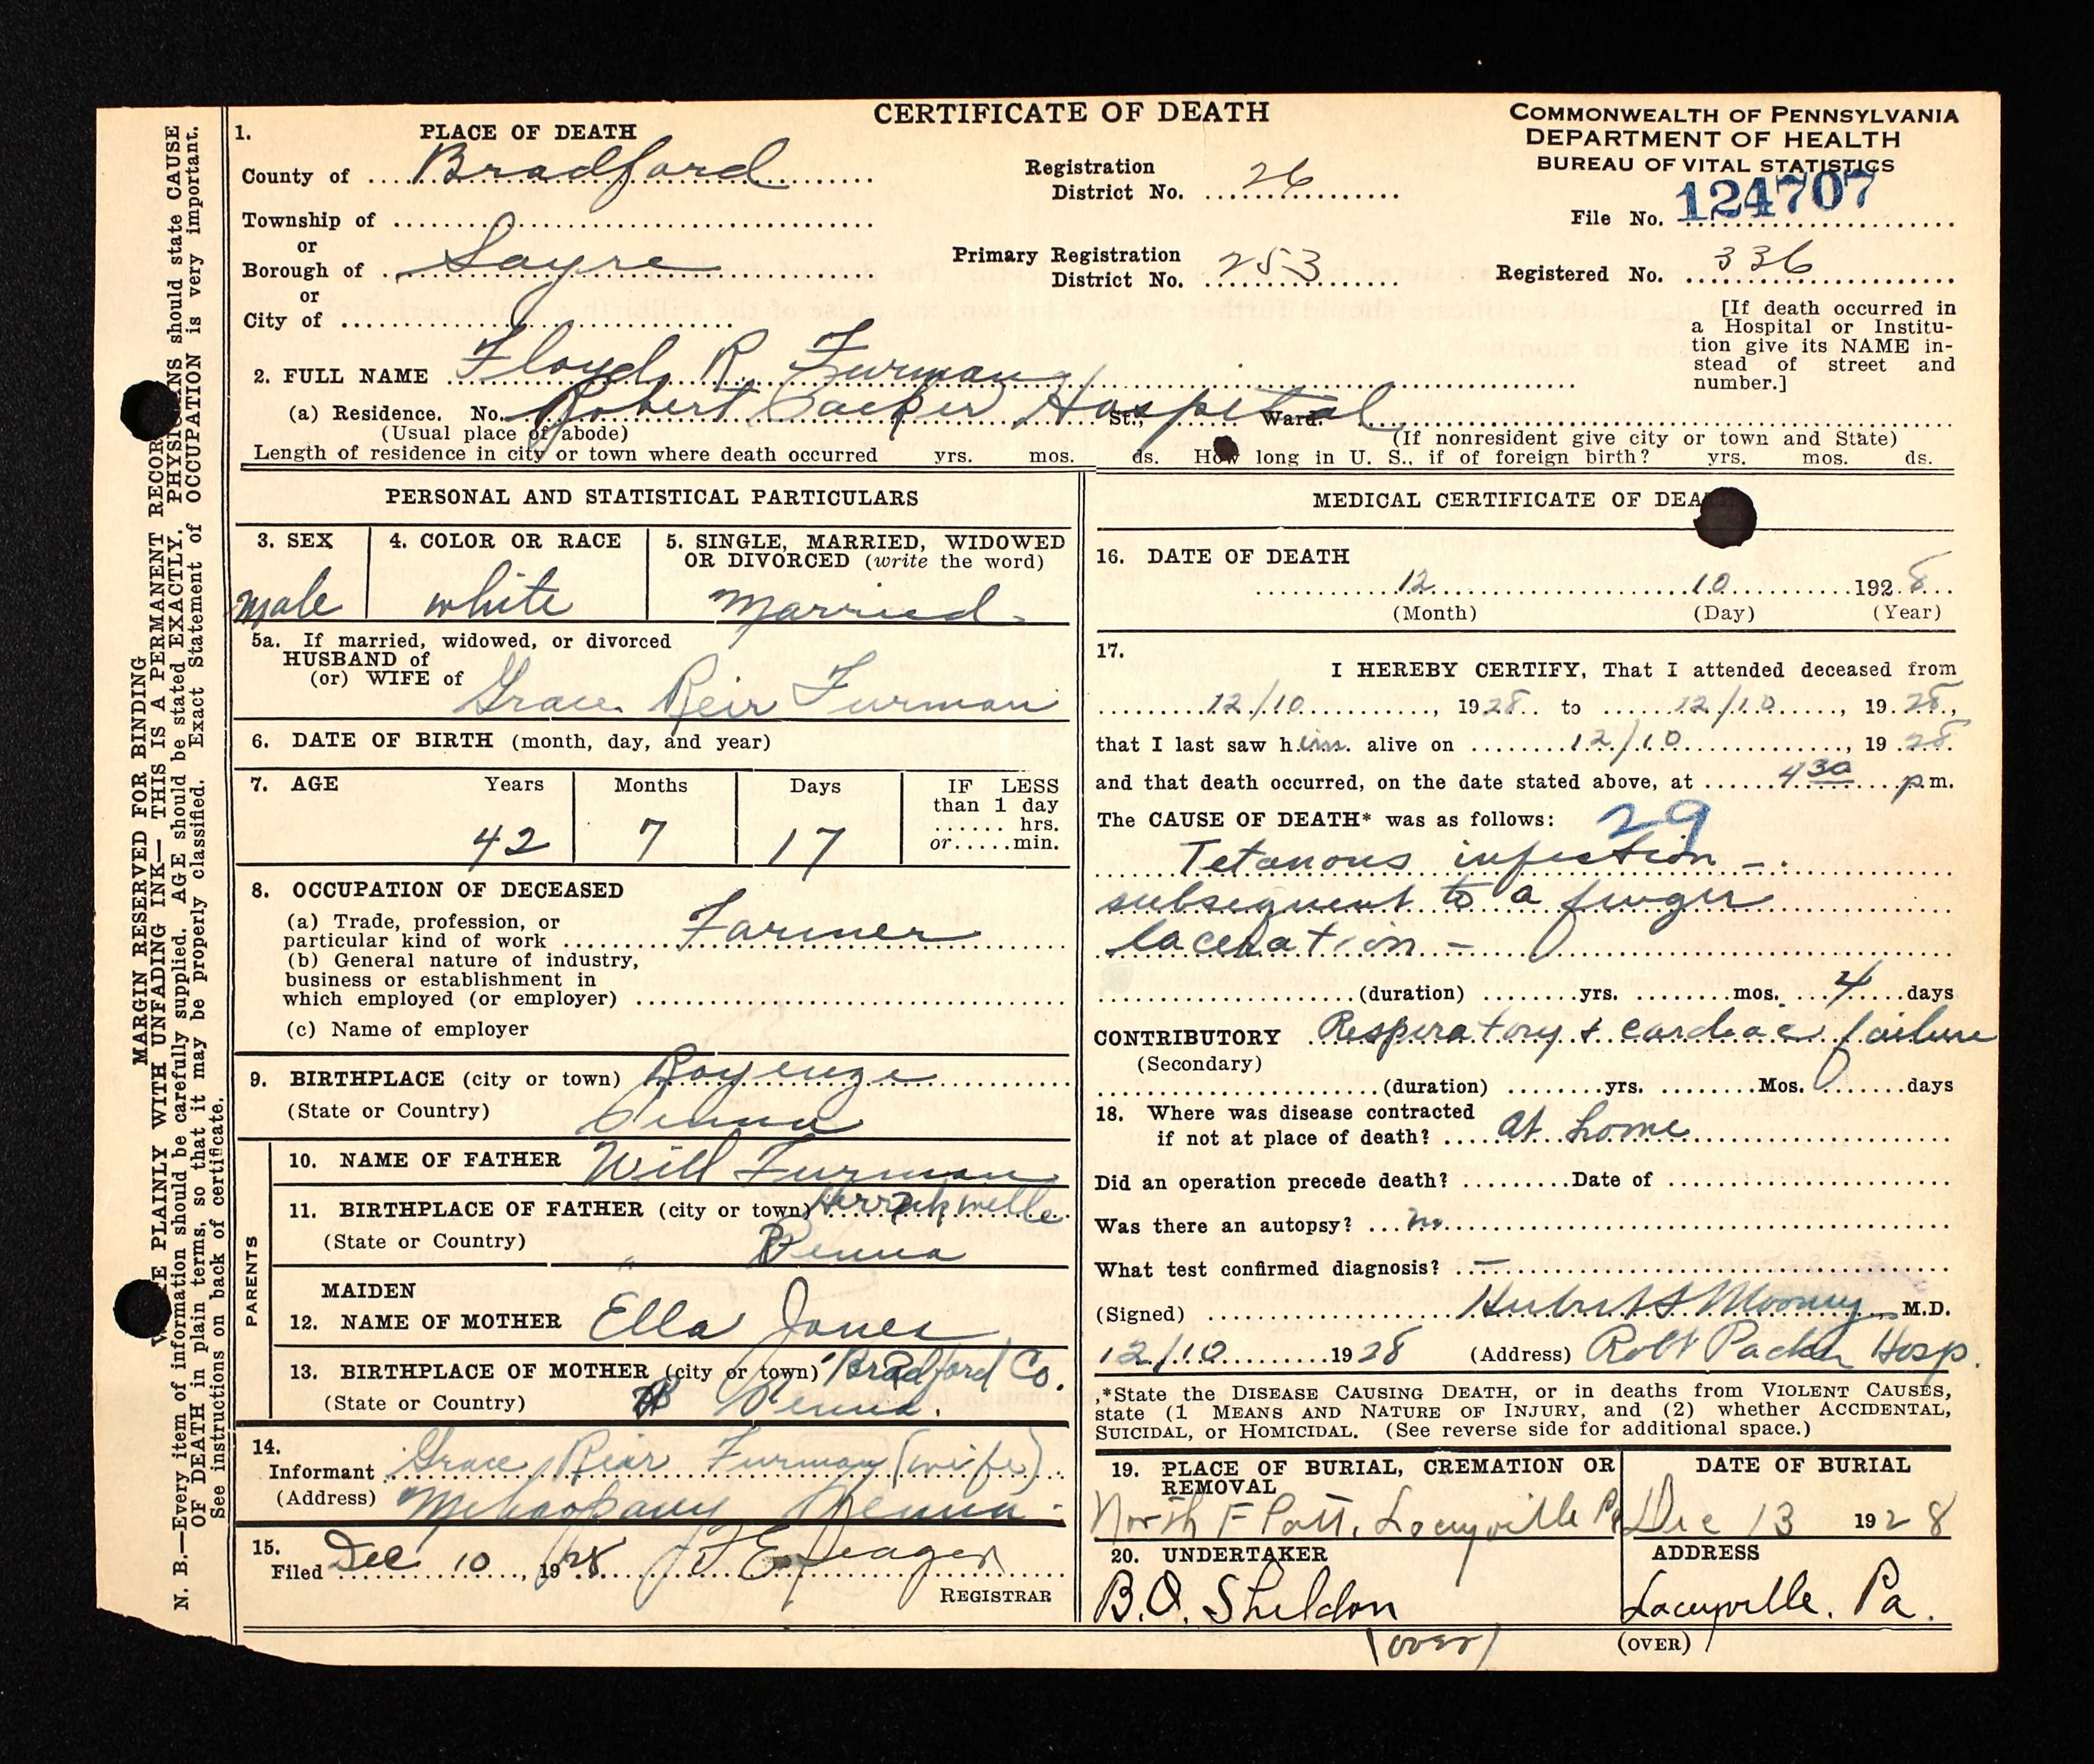 CERTIFICATE OF DEATH
COMMONWEALTH OF PENNSYLVANIA
DEPARTMENT OF HEALTH
BUREAU OF VITAL STATISTICS
File No. 124707
Registered No. 336
1. PLACE OF DEATH
County of Bradford
Township of
or
Borough of Sayre
or
City of
Registration District No. 26
Primary Registration District No. 253
[If death occurred in
a Hospital or Institu-
tion give its NAME in-
stead of street and
number.]
2. FULL NAME Floyd R. Furman
(a) Residence. No. Robert Packer Hospital St., Ward.
(Usual place of abode) (If nonresident give city or town and State)
Length of residence in city or town where death occurred yrs. mos. ds. How long in U. S., if of foreign birth? yrs. mos. ds.
PERSONAL AND STATISTICAL PARTICULARS
3. SEX
male
4. COLOR OR RACE
white
5. SINGLE, MARRIED, WIDOWED
OR DIVORCED (write the word)
Married
5a. If married, widowed, or divorced
HUSBAND of
(or) WIFE of
Grace Reir Furman
6. DATE OF BIRTH (month, day, and year)
7. AGE Years Months Days
42 7 17
IF LESS
than 1 day
hrs.
or min.
8. OCCUPATION OF DECEASED
(a) Trade, profession, or
particular kind of work Farmer
(b) General nature of industry,
business or establishment in
which employed (or employer)
(c) Name of employer
9. BIRTHPLACE (city or town)
(State or Country) Penna
PARENTS
10. NAME OF FATHER Will Furman
11. BIRTHPLACE OF FATHER (city or town)
(State or Country) Penna
MAIDEN
12. NAME OF MOTHER Ella Jones
13. BIRTHPLACE OF MOTHER (city or town) Bradford Co.
(State or Country) Penna.
14.
Informant Grace Reir Furman (wife)
(Address) Mehoopany Penna.
15.
Filed Dec 10, 1928
REGISTRAR
MEDICAL CERTIFICATE OF DEA
16. DATE OF DEATH
12 10 1928
(Month) (Day) (Year)
17.
I HEREBY CERTIFY, That I attended deceased from
12/10, 1928 to 12/10, 1928,
that I last saw him alive on 12/10, 1928
and that death occurred, on the date stated above, at 4 30 p m.
The CAUSE OF DEATH* was as follows:
29
Tetanous infection -.
subsequent to a finger
laceration -
(duration) yrs. mos. 4 days
CONTRIBUTORY Respiratory & cardiac failure
(Secondary)
(duration) yrs. Mos. days
18. Where was disease contracted
if not at place of death? at home
Did an operation precede death? Date of
Was there an autopsy? no
What test confirmed diagnosis? —
(Signed) Hubert S Mooney M.D.
12/10 1928 (Address) Robt Packer Hosp.
*State the DISEASE CAUSING DEATH, or in deaths from VIOLENT CAUSES,
state (1 MEANS AND NATURE OF INJURY, and (2) whether ACCIDENTAL,
SUICIDAL, or HOMICIDAL. (See reverse side for additional space.)
19. PLACE OF BURIAL, CREMATION OR
REMOVAL
North Laceyville Pa
DATE OF BURIAL
Dec 13 1928
20. UNDERTAKER
B.O. Sheldon
ADDRESS
Laceyville, Pa.
(over)
(OVER)
MARGIN RESERVED FOR BINDING
PLAINLY WITH UNFADING INK— THIS IS A PERMANENT RECOR
N. B.—Every item of information should be carefully supplied. AGE should be stated EXACTLY. PHYSICIANS should state CAUSE
OF DEATH in plain terms, so that it may be properly classified. Exact Statement of OCCUPATION is very important.
See instructions on back of certificate.